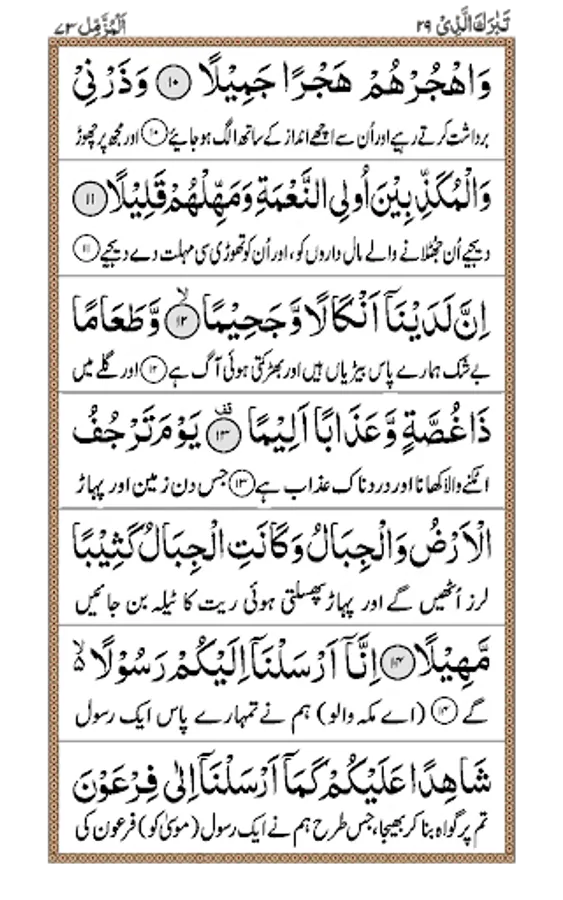 تَبٰرَكَ الَّذِیْ ۲۹
اَلْمُزَّمِّل ۷۳
وَاهْجُرْهُمْ هَجْرًا جَمِیْلًا ۝۱۰ وَذَرْنِیْ
برداشت کرتے رہیے اور اُن سے اچھے انداز کے ساتھ الگ ہو جائیے ۝۱۰ اور مجھ پر چھوڑ
وَالْمُكَذِّبِیْنَ اُولِی النَّعْمَةِ وَمَهِّلْهُمْ قَلِیْلًا ۝۱۱
دیجیے اُن جھٹلانے والے مال داروں کو، اور اُن کو تھوڑی سی مہلت دے دیجیے ۝۱۱
اِنَّ لَدَیْنَاۤ اَنْكَالًا وَّجَحِیْمًا ۙ۝۱۲ وَّطَعَامًا
بے شک ہمارے پاس بیڑیاں ہیں اور بھڑکتی ہوئی آگ ہے ۝۱۲ اور گلے میں
ذَا غُصَّةٍ وَّعَذَابًا اَلِیْمًا ۝۱۳ یَوْمَ تَرْجُفُ
اٹکنے والا کھانا اور دردناک عذاب ہے ۝۱۳ جس دن زمین اور پہاڑ
الْاَرْضُ وَالْجِبَالُ وَكَانَتِ الْجِبَالُ كَثِیْبًا
لرز اُٹھیں گے اور پہاڑ پھسلتی ہوئی ریت کا ٹیلہ بن جائیں
مَّهِیْلًا ۝۱۴ اِنَّاۤ اَرْسَلْنَاۤ اِلَیْكُمْ رَسُوْلًا ۙ۬
گے ۝۱۴ (اے مکہ والو) ہم نے تمہارے پاس ایک رسول
شَاهِدًا عَلَیْكُمْ كَمَاۤ اَرْسَلْنَاۤ اِلٰی فِرْعَوْنَ
تم پر گواہ بنا کر بھیجا، جس طرح ہم نے ایک رسول (موسیٰ کو) فرعون کی